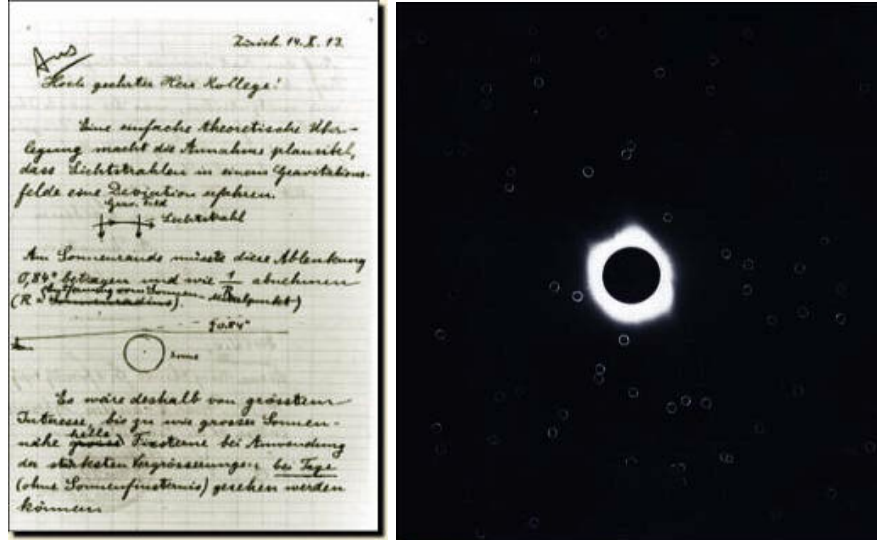 Aus
Zürich. 14. X. 13.
Hoch geehrter Herr Kollege!
Eine einfache theoretische Über-
legung macht die Annahme plausibel,
dass Lichtstrahlen in einem Gravitations-
felde eine Deviation erfahren.
Grav. Feld
Lichtstrahl
Am Sonnenrande müsste diese Ablenkung
0,84" betragen und wie 1/R abnehmen
(R = Entfernung vom Sonnen-Mittelpunkt)
0.84"
Sonne
Es wäre deshalb von grösstem
Interesse, bis zu wie grosser Sonnen-
nähe helle Fixsterne bei Anwendung
der stärksten Vergrösserungen bei Tage
(ohne Sonnenfinsternis) gesehen werden
können.